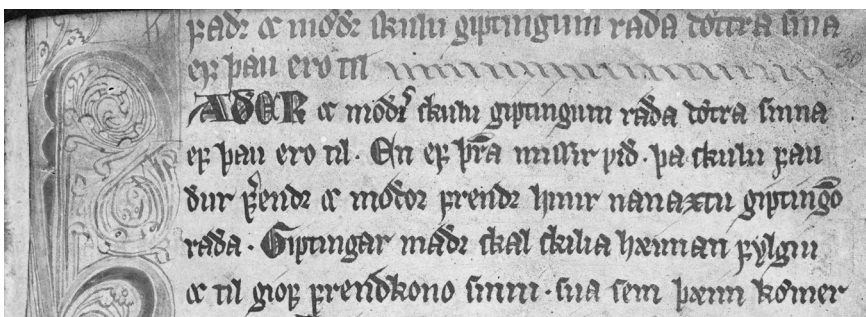 ꝼaðꝛ ⁊ moðꝛ skulu giptingum raða dottra sinna
eꝼ þau ero til
FADER ⁊ moðir skulu giptingum raða dottra sinna
eꝼ þau ero til. En eꝼ þeirra missir við. þa skulu ꝼau
ður ꝼrendꝛ ⁊ moðor ꝼrendꝛ hinir nanaztu giptingō
raða. Giptingar maðꝛ skal skilia hæiman ꝼylgiu
⁊ til gioꝼ ꝼrendkono sinni. sua sem þæim kǫmer